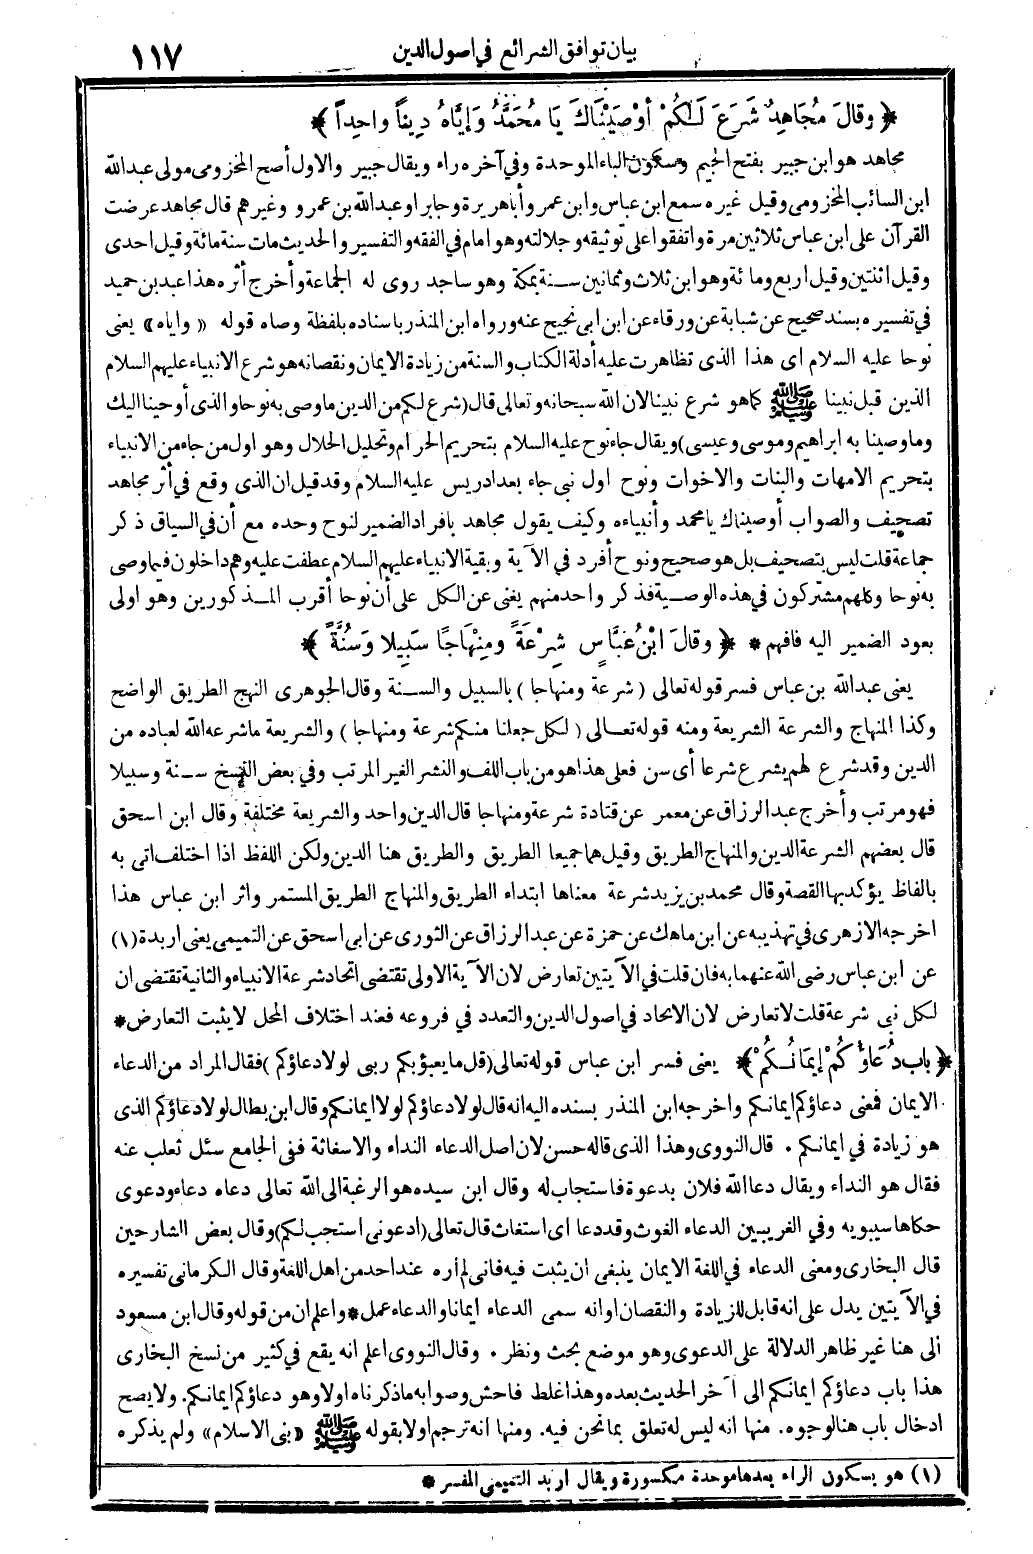 بيان توافق الشرائع في اصول الدين ١١٧
﴿ وقالَ مُجَاهِدٌ شَرَعَ لَـكُمْ أوْصَيْنَاكَ يَا مُحَمَّدُ وَإيَّاهُ دِيناً واحِداً ﴾
مجاهد هو ابن جبير بفتح الجيم وسكون الباء الموحدة وفي آخره راء ويقال جبير والاول أصح المخزومى مولى عبدالله
ابن السائب المخزومى وقيل غيره سمع ابن عباس وابن عمر وأباهريرة وجابر او عبدالله بن عمرو وغيرهم قال مجاهد عرضت
القرآن على ابن عباس ثلاثين مرة واتفقوا على توثيقه وجلالته وهو امام في الفقه والتفسير والحديث مات سنة مائة وقيل احدى
وقيل اثنتين وقيل اربع ومائة وهو ابن ثلاث وثمانين سـنة بمكة وهو ساجد روى له الجماعة وأخرج أثره هذا عبد بن حميد
في تفسيره بسند صحيح عن شبابة عن ورقاء عن ابن ابى نجيح عنه ورواه ابن المنذر باسناده بلفظة وصاه قوله « واياه » يعنى
نوحا عليه السلام اى هذا الذى تظاهرت عليه أدلة الكتاب والسنة من زيادة الايمان ونقصانه هو شرع الانبياء عليهم السلام
الذين قبل نبينا ﷺ كما هو شرع نبينا لان الله سبحانه وتعالى قال (شرع لكم من الدين ما وصى به نوحا والذى أوحينا اليك
وما وصينا به ابراهيم وموسى وعيسى) ويقال جاء نوح عليه السلام بتحريم الحرام وتحليل الحلال وهو اول من جاء من الانبياء
بتحريم الامهات والبنات والاخوات ونوح اول نبى جاء بعد ادريس عليه السلام وقد قيل ان الذى وقع في أثر مجاهد
تصحيف والصواب أوصيناك يا محمد وأنبياءه وكيف يقول مجاهد بافراد الضمير لنوح وحده مع أن في السياق ذكر
جماعة قلت ليس بتصحيف بل هو صحيح ونوح أفرد في الآية وبقية الانبياء عليهم السلام عطفت عليه وهم داخلون فيما وصى
به نوحا وكلهم مشتركون في هذه الوصـية فذكر واحد منهم يغنى عن الكل على أن نوحا أقرب المـذكورين وهو اولى
بعود الضمير اليه فافهم * ﴿ وقالَ ابْنُ عَبَّاسٍ شِرْعَةً ومِنْهَاجًا سَبِيلا وَسُنَّةً ﴾
يعنى عبدالله بن عباس فسر قوله تعالى ( شرعة ومنهاجا ) بالسبيل والسـنة وقال الجوهرى النهج الطريق الواضح
وكذا المنهاج والشرعة الشريعة ومنه قوله تعـالى ( لكل جعلنا منكم شرعة ومنهاجا ) والشريعة ما شرعه الله لعباده من
الدين وقد شرع لهم يشرع شرعا أى سن فعلى هذا هو من باب اللف والنشر الغير المرتب وفي بعض النسخ سـنة وسبيلا
فهو مرتب وأخرج عبد الرزاق عن معمر عن قتادة شرعة ومنهاجا قال الدين واحد والشريعة مختلفة وقال ابن اسحق
قال بعضهم الشرعة الدين والمنهاج الطريق وقيل هما جميعا الطريق والطريق هنا الدين ولكن اللفظ اذا اختلف اتى به
بالفاظ يؤكد بها القصة وقال محمد بن يزيد شرعة معناها ابتداء الطريق والمنهاج الطريق المستمر واثر ابن عباس هذا
اخرجه الازهرى في تهذيبه عن ابن ماهك عن حمزة عن عبد الرزاق عن الثورى عن ابى اسحق عن التميمى يعنى اربدة (١)
عن ابن عباس رضى الله عنهما به فان قلت في الآيتين تعارض لان الآية الاولى تقتضى اتحاد شرعة الانبياء والثانية تقتضى ان
لكل نبى شرعة قلت لا تعارض لان الاتحاد في اصول الدين والتعدد في فروعه فعند اختلاف المحل لا يثبت التعارض *
﴿ باب دُعَاؤُكُمْ إيمَانُـكُمْ ﴾ يعنى فسر ابن عباس قوله تعالى (قل ما يعبؤ بكم ربى لولا دعاؤكم ) فقال المراد من الدعاء
الايمان فمعنى دعاؤكم ايمانكم واخرجه ابن المنذر بسنده اليه انه قال لولا دعاؤكم لولا ايمانكم وقال ابن بطال لولا دعاؤكم الذى
هو زيادة في ايمانكم . قال النووى وهذا الذى قاله حسن لان اصل الدعاء النداء والاسغاثة ففى الجامع سئل ثعلب عنه
فقال هو النداء ويقال دعا الله فلان بدعوة فاستجاب له وقال ابن سيده هو الرغبة الى الله تعالى دعاه دعاء ودعوى
حكاها سيبويه وفي الغريبين الدعاء الغوث وقد دعا اى استغاث قال تعالى (ادعونى استجب لكم) وقال بعض الشارحين
قال البخارى ومعنى الدعاء في اللغة الايمان ينبغى ان يثبت فيه فانى لم أره عند احد من اهل اللغة وقال الكرمانى تفسيره
في الآيتين يدل على انه قابل للزيادة والنقصان او انه سمى الدعاء ايمانا والدعاء عمل * واعلم ان من قوله وقال ابن مسعود
الى هنا غير ظاهر الدلالة على الدعوى وهو موضع بحث ونظر . وقال النووى اعلم انه يقع في كثير من نسخ البخارى
هذا باب دعاؤكم ايمانكم الى آخر الحديث بعده وهذا غلط فاحش وصوابه ما ذكرناه اولا وهو دعاؤكم ايمانكم. ولا يصح
ادخال باب هنا لوجوه. منها انه ليس له تعلق بما نحن فيه. ومنها انه ترجم اولا بقوله ﷺ «بنى الاسلام» ولم يذكره
(١) هو بسكون الراء بعدها موحدة مكسورة ويقال اربد التميمى المفسر *